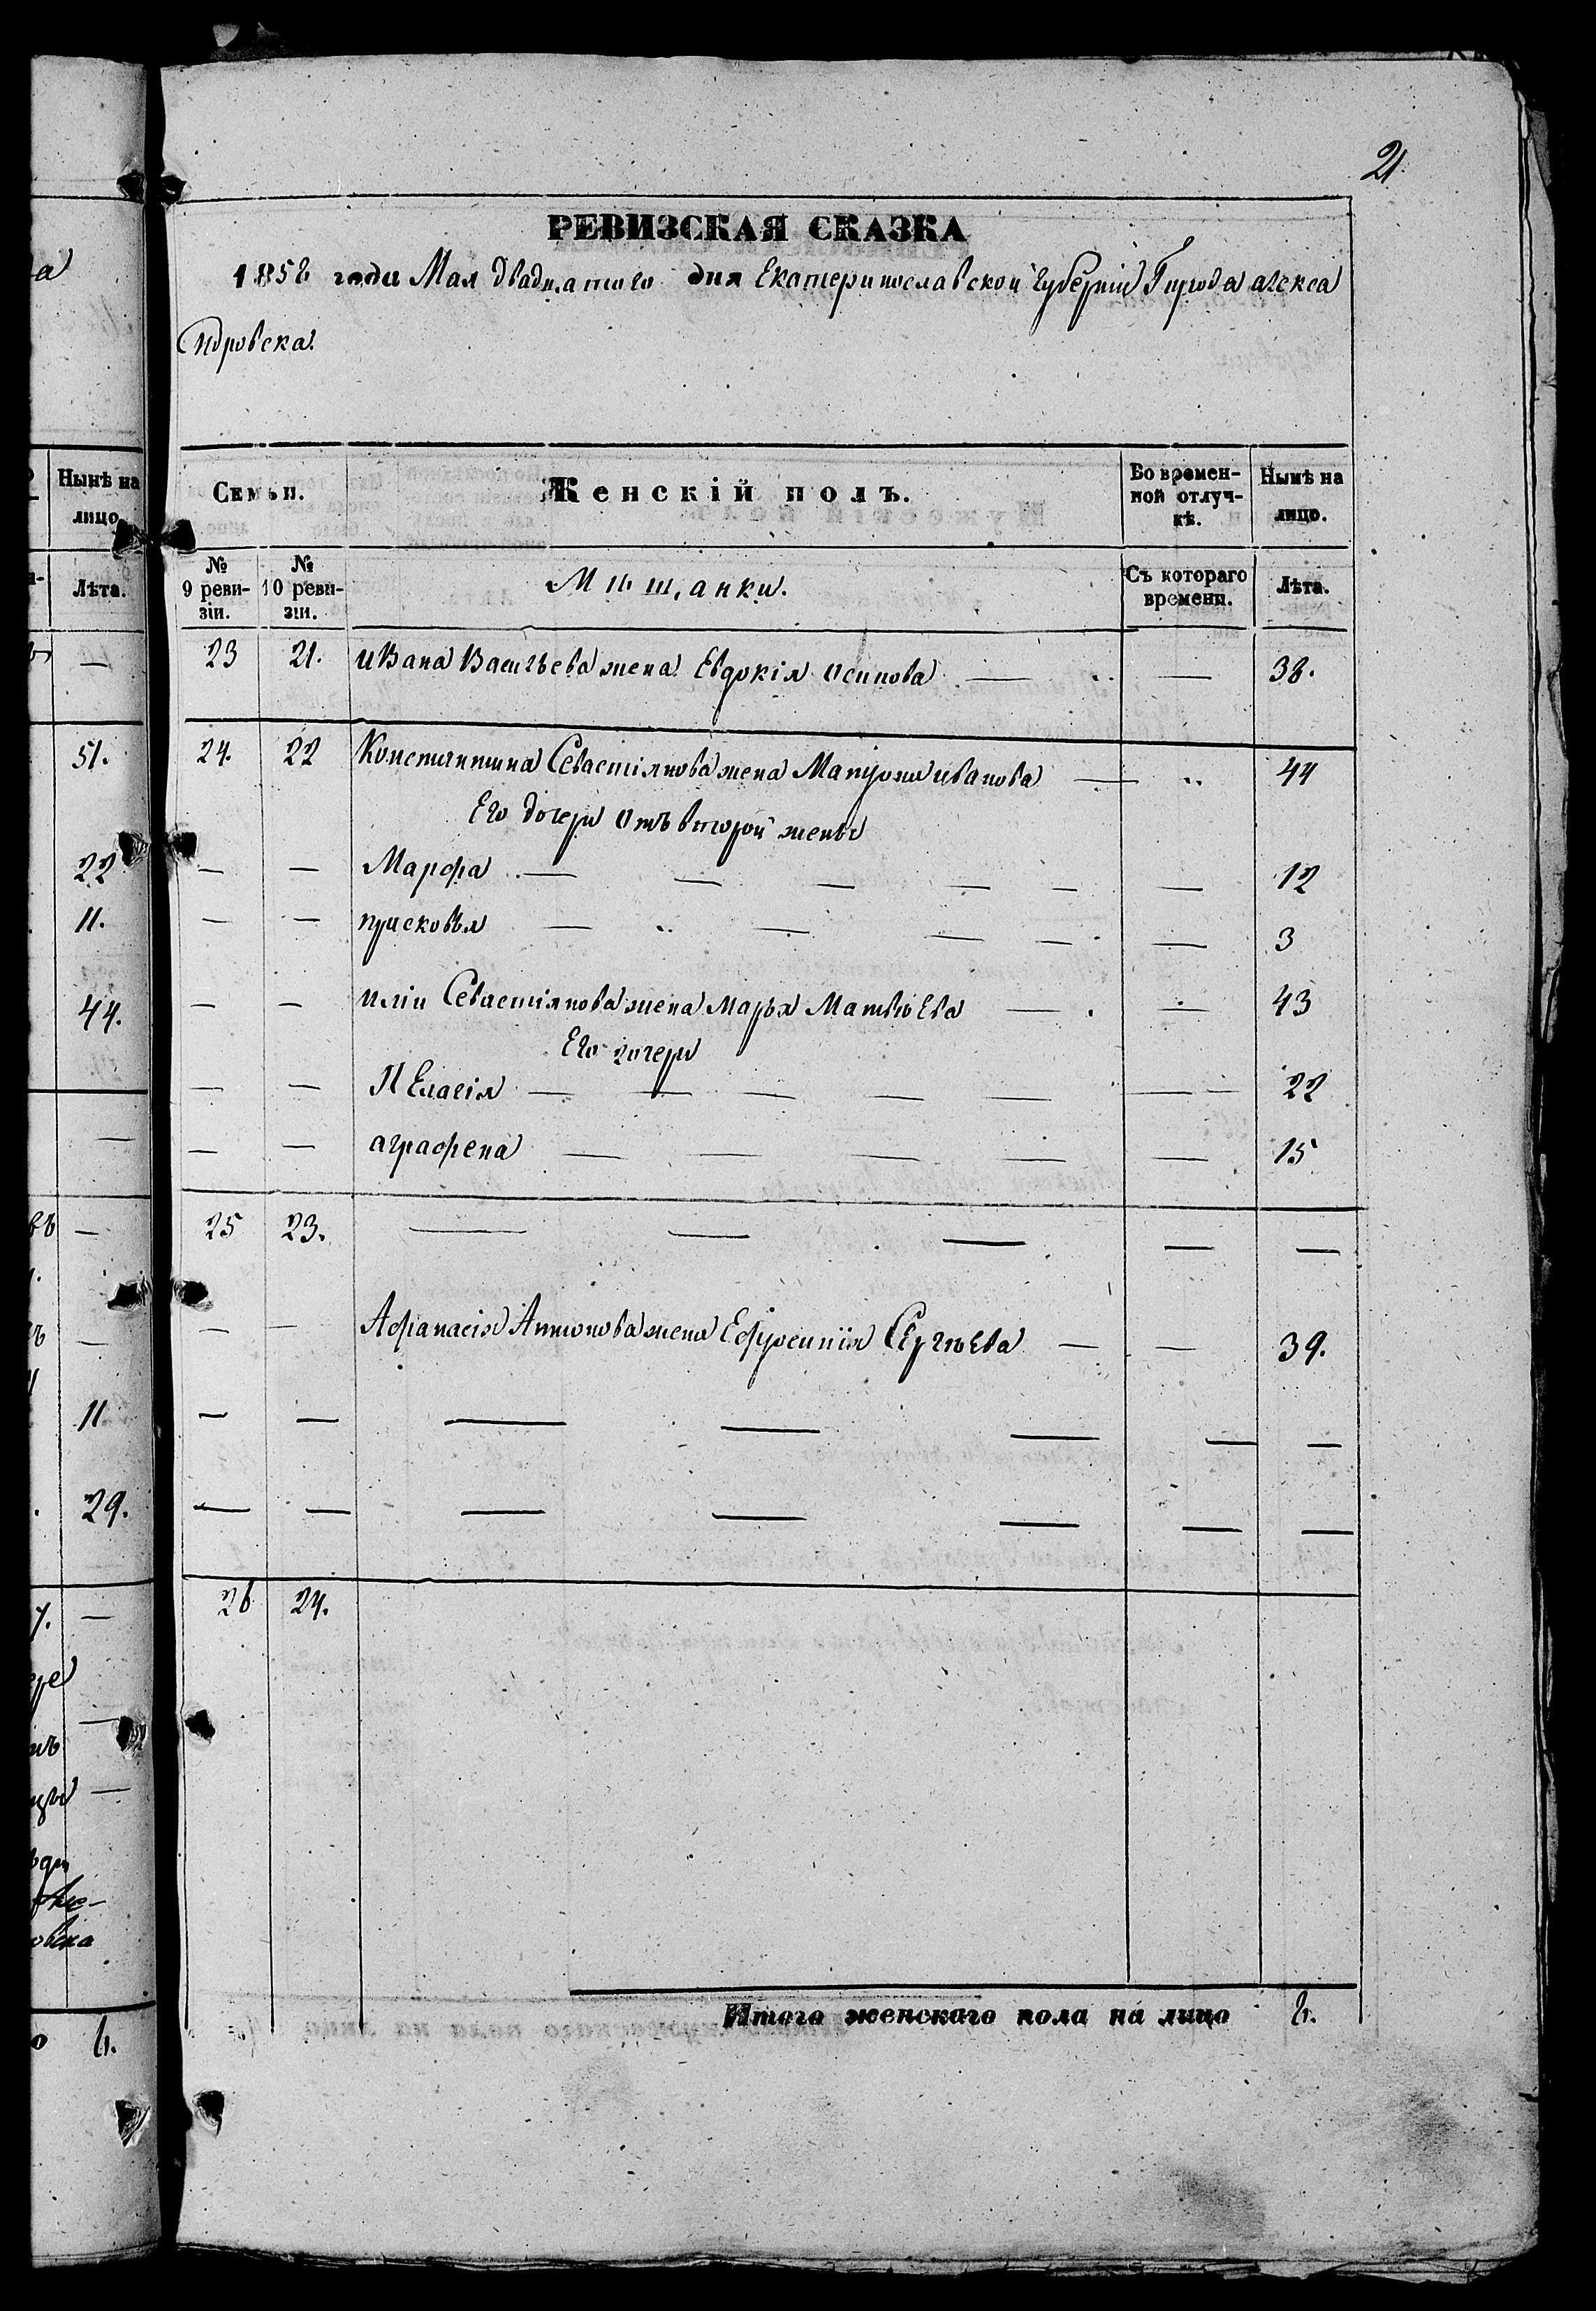 21
РЕВИЗСКАЯ СКАЗКА
1858 года Мая двадцатого дня Екатеринославской губерніи Города алекса
ндровска.
Семьи. Женскій полъ. Во времен-ной отлуч-кѣ. Нынѣ на лицо.
№ 9 реви-зіи. № 10 реви-зіи. Мѣщанки. Съ котораго времени. Лѣта.
23 21. ивана Васильева жена Евдокія осипова — — 38.
24. 22 Константина Севастіянова жена Матрона иванова — 44
Его дочери отъ второй жены
— — Марфа — — — — — — 12
— — прасковья — — — — — 3
— — иліи Севастіянова жена марья Матвѣева — — 43
Его дочери
— — Пелагія — — — — — — 22
— — аграфена — — — — — 15
25 23. — — — — —
— — Афанасія Антонова жена Ефросинія Сергѣева — — 39.
— — — — — — —
— — — — — — —
26 24.
Итого женскаго пола на лицо 8.
а
Нынѣ на
лицо.
Лѣта.
—
51.
22
11.
44.
—
въ —
—
11
29.
—
—
—
овска
о 8.